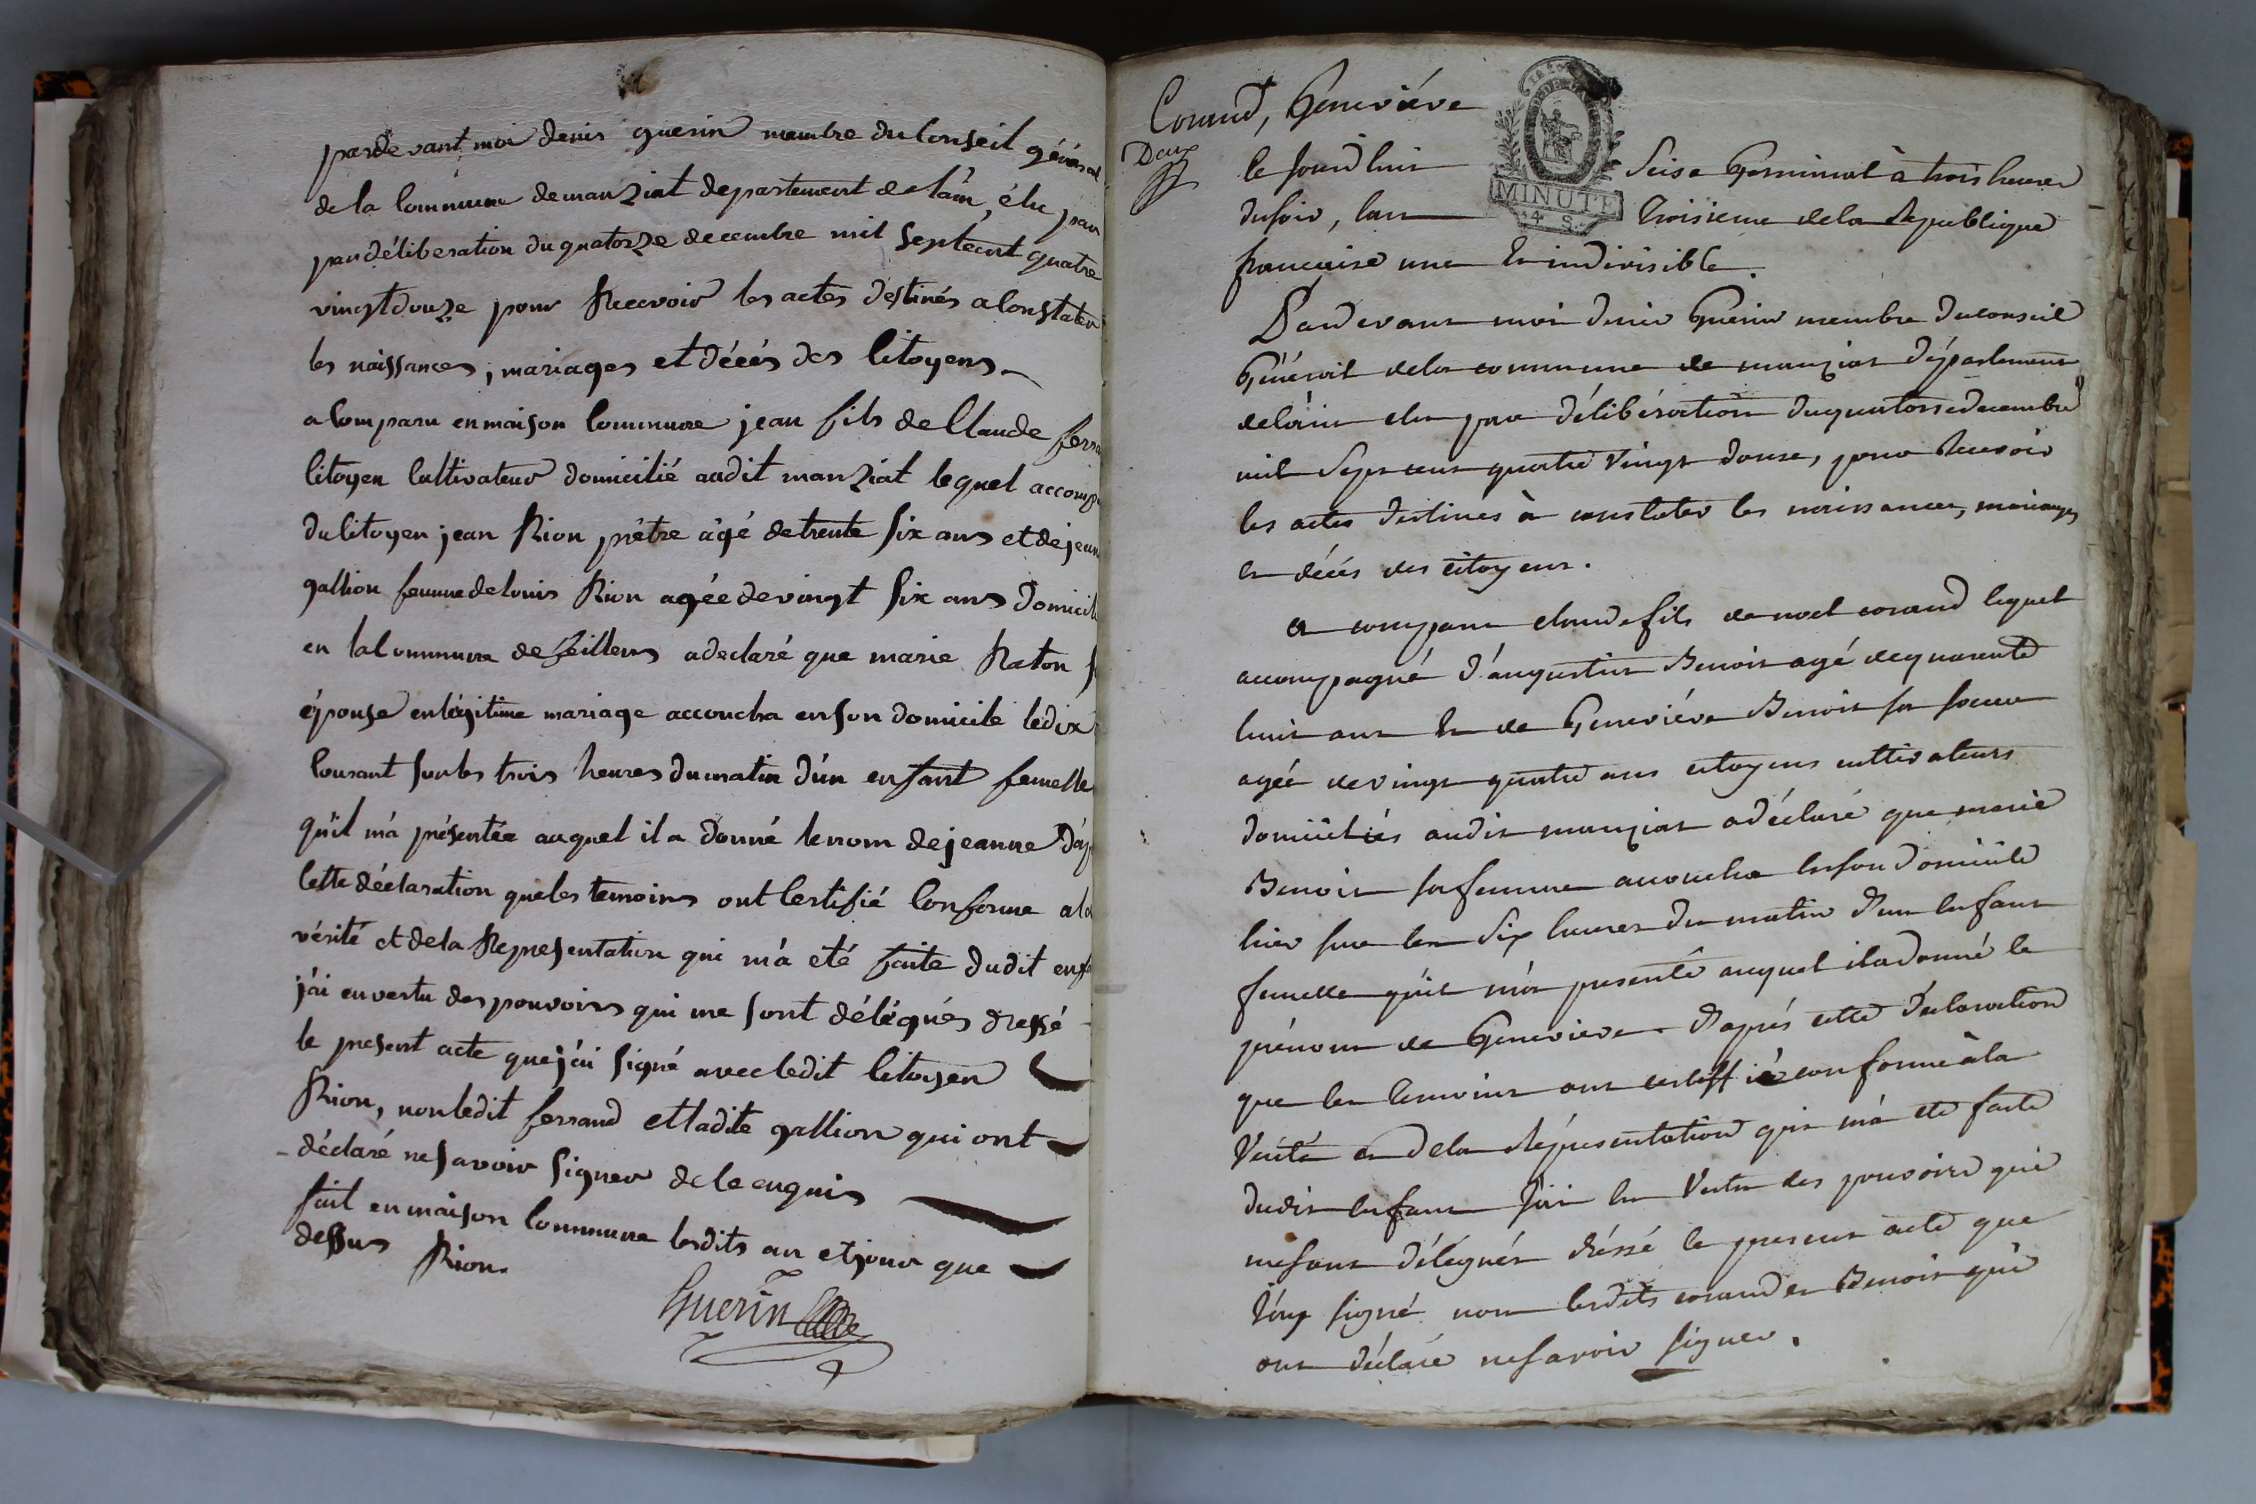 pardevant moi denis guerin membre du Conseil général
de la Commune de manziat departement de lain, élu par
par déliberation du quatorze decembre mil Septcent quatre
vingt douze pour Recevoir les actes destinés a Constater
les naissances, mariages et décés des Citoyens
a Comparu en maison Commune jean fils de Claude
Citoyen Cultivateur domicilié audit manziat lequel
du Citoyen jean Rion prêtre âgé de trente six ans et de
gallion femme de louis Rion agée de vingt six ans
en la Commune de feillens a declaré que marie Raton
épouse en légitime mariage accoucha en son domicile le dix
Courant sur les trois heures du matin d'un enfant femelle
qu'il m'a présentée auquel il a donné le nom de jeanne
Cette déclaration que les temoins ont Certifié Conforme a la
vérité et de la Representation qui m'a été faite dudit
j'ai en vertu des pouvoirs qui me sont délégués dressé
le present acte que j'ai signé avec ledit Citoyen
Rion, non ledit ferrand et ladite gallion qui ont
déclaré ne savoir signer de ce enquis
fait en maison Commune lesdits an et jour que
dessus Rion.
Guerin
Corand, Geneviéve
Deux
MINUTE
4 S.
Ce Jourd'hui Seise Germinal à trois heures
du soir, lan troisieme de la Republique
francaise une et indivisible.
Pardevant moi denis Guerin membre du conseil
Général de la commune de manziat département
de l'ain elu par délibération du quatorse decembre
mil Sept cent quatre Vingt douse, pour Recevoir
les actes destines à constater les naissances, mariages
et décés des citoyens.
a comparu claude fils de noel corand lequel
accompagné d'augustin Benoit agé de quarente
huit ans et de Geneviéve Benoit sa soeur
agée de vingt quatre ans citoyens cultivateurs
domiciliés audit manziat a déclaré que marie
Benoit sa femme accoucha en son domicile
hier sur les Six heures du matin d'un enfant
femelle qu'il m'a presenté auquel il a donné le
prénom de Genevieve. d'aprés cette déclaration
que les temoins ont certiffié conforme à la
Vérité et de la Répresentation qui m'a eté faite
dudit enfant j'ai en Vertu des pouvoirs qui
me sont délégués dréssé le present acte que
J'ay signé non lesdits corand et Benoit qui
ont déclaré ne savoir signer.